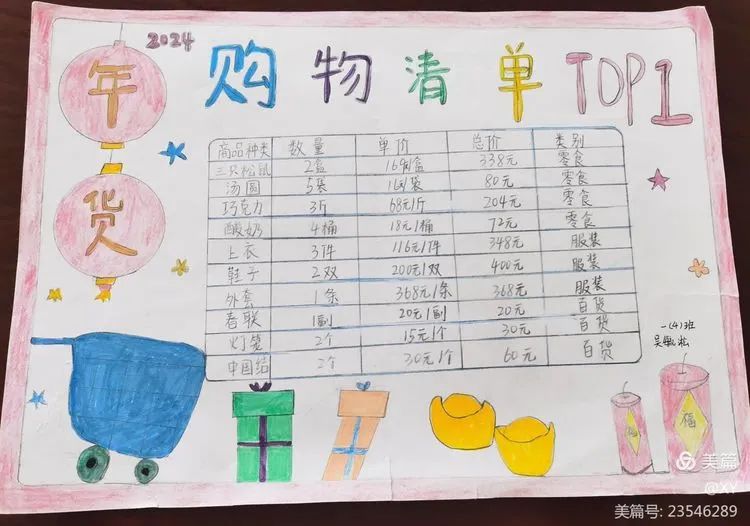 2024
年货
购物清单TOP1
商品种类 数量 单价 总价 类别
三只松鼠 2盒 169/盒 338元 零食
汤圆 5袋 16/袋 80元 零食
巧克力 3斤 68元/斤 204元 零食
酸奶 4桶 18元/桶 72元 零食
上衣 3件 116元/件 348元 服装
鞋子 2双 200元/双 400元 服装
外套 1条 368元/条 368元 服装
春联 1副 20元/副 20元 百货
灯笼 2个 15元/个 30元 百货
中国结 2个 30元/个 60元 百货
一(4)班
福
福
美篇
@XY
美篇号: 23546289